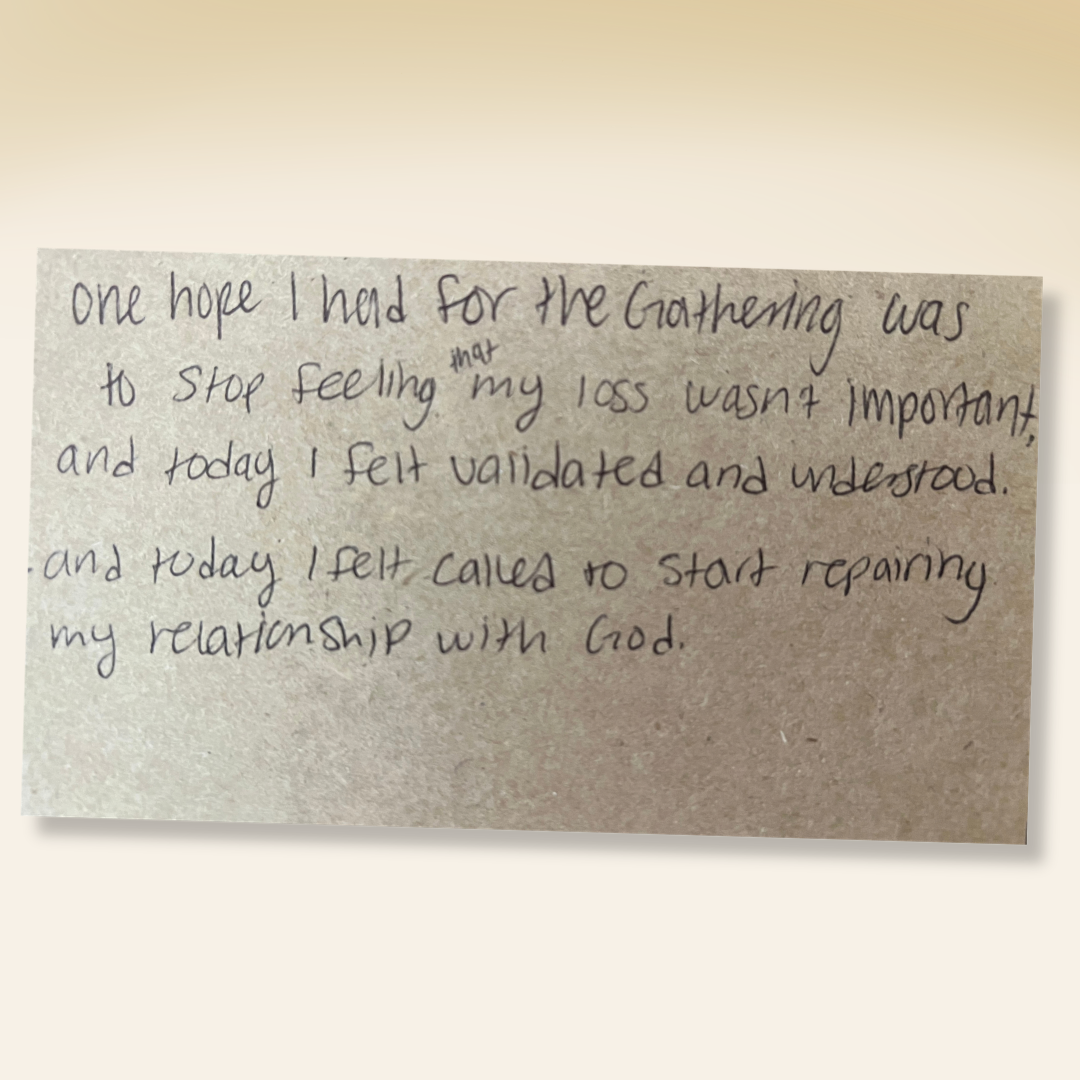 one hope I had for the Gathering was
to stop feeling that my loss wasn't important,
and today I felt validated and understood.
and today I felt called to start repairing
my relationship with God.